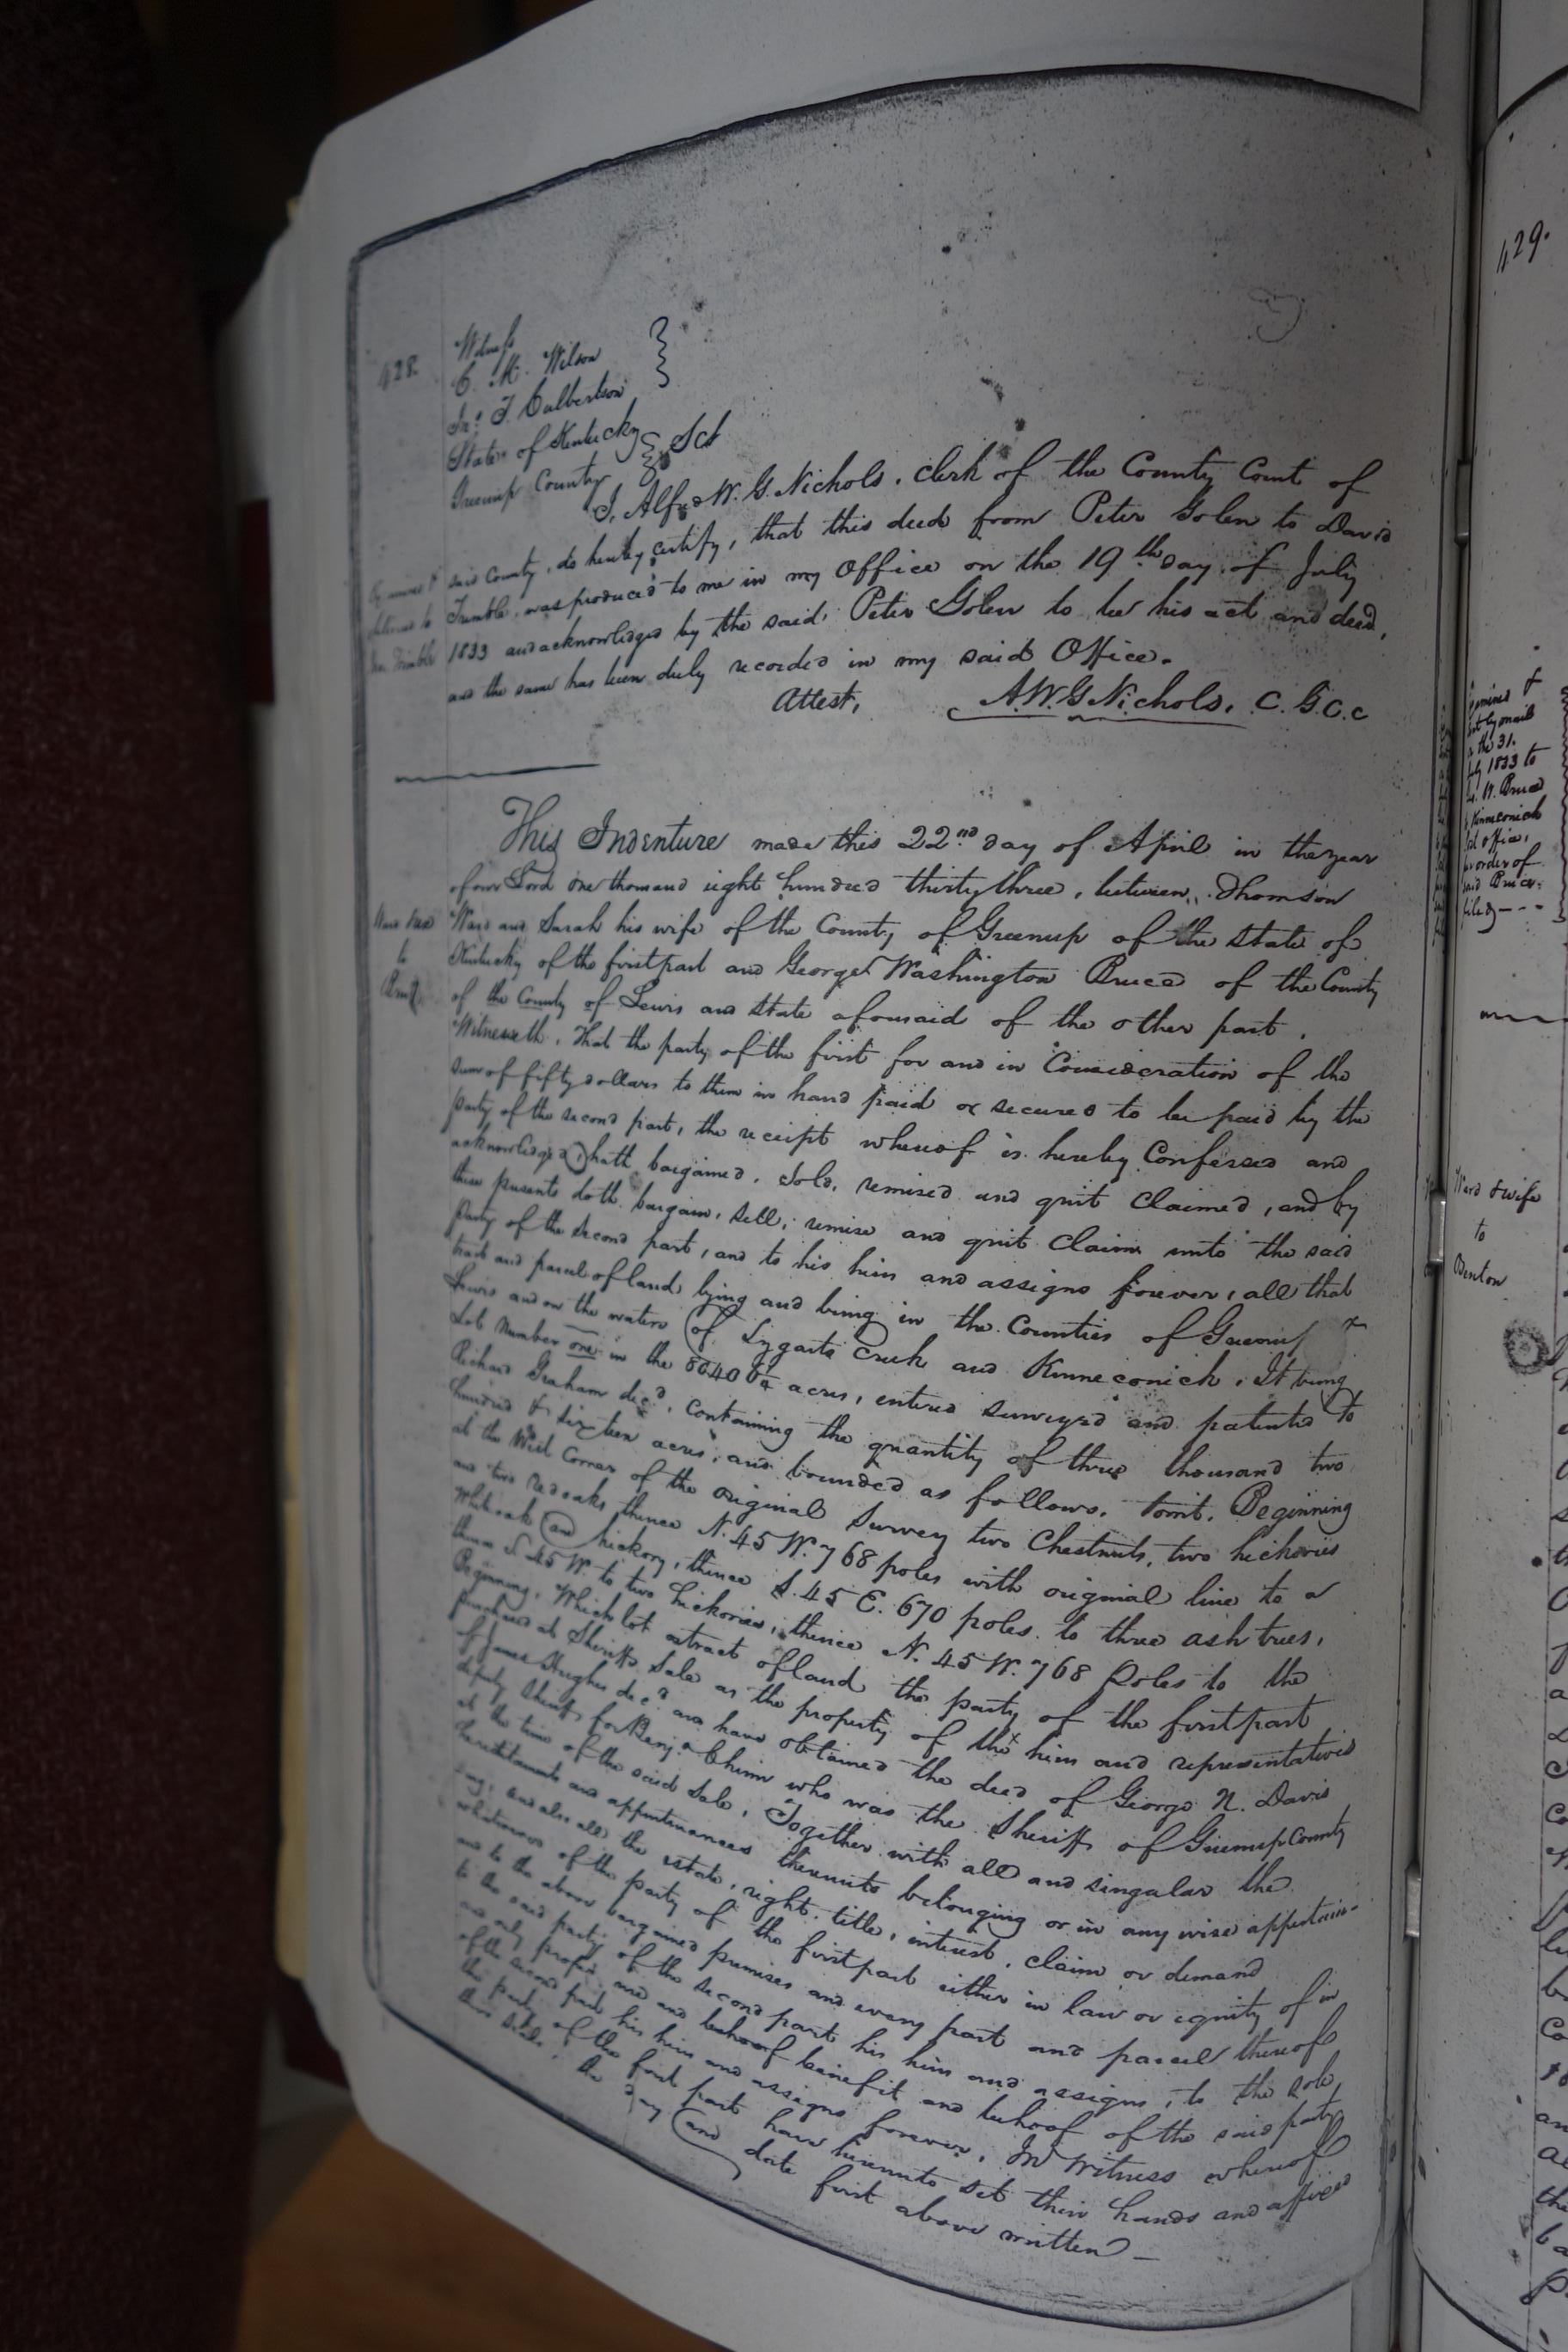 428.
Witness
C. M. Wilson
Jno. T. Culbertson
State of Kentucky
Greenup County } Sct
I, Alfred W. G. Nichols, Clerk of the County Court of
said County, do hereby certify, that this deed from Peter Golen to David
Trimble, was produced to me in my Office on the 19th day of July
1833 and acknowledged by the said Peter Golen to be his act and deed,
and the same has been duly recorded in my said Office.
Attest, A. W. G Nichols, C. G. C. C
This Indenture made this 22nd day of April in the year
of our Lord one thousand eight hundred thirty three, between Thomson
Ward and Sarah his wife of the County of Greenup of the State of
Kentucky of the first part and George Washington Bruce of the County
of the County of Lewis and State aforesaid of the other part,
Witnesseth, That the party of the first for and in Consideration of the
sum of fifty dollars to them in hand paid or secured to be paid by the
party of the second part, the receipt whereof is hereby Confessed and
acknowledged, hath bargained, sold, remised and quit claimed, and by
these presents doth bargain, sell, remise and quit claim unto the said
party of the second part, and to his heirs and assigns forever, all that
tract and parcel of land lying and being in the Counties of Greenup &
Lewis and on the waters of Tygarts Creek and Kinneconick. It being
Lot Number one in the acres, entered surveyed and patented to
Richard Graham decd, containing the quantity of three thousand two
hundred & sixteen acres, and bounded as follows, towit. Beginning
at the West Corner of the original Survey two Chestnuts, two hickories
and two red oaks thence N. 45 W. 768 poles with original line to a
white oak and hickory, thence S. 45 E. 670 poles to three ash trees,
thence S. 45 W. to two hickories, thence N. 45 W. 768 Poles to the
Beginning. Which lot or tract of land the party of the first part
purchased at Sheriffs Sale as the property of the heirs and representatives
of James Hughes decd and have obtained the deed of George N. Davis
deputy Sheriff for Benja. Chinn who was the Sheriff of Greenup County
at the time of the said Sale, Together with all and singular the
hereditaments and appurtenances thereunto belonging or in any wise appertain-
ing, and also all the estate, right, title, interest, claim or demand
whatsoever of the party of the first part either in law or equity of in
and to the above bargained premises and every part and parcel thereof
to the said party of the second part his heirs and assigns, to the sole
and only proper use and behoof benefit and behoof of the said party
of the second part his heirs and assigns forever. In Witness whereof
the party of the first part have hereunto set their hands and affixed
their seals, the day and date first above written—
to
Bruce
429.
the 31.
July 1833 to
W. Bruce
Kinneconick
office,
order of
said Bruce.
filed---
Ward & wife
to
Benton